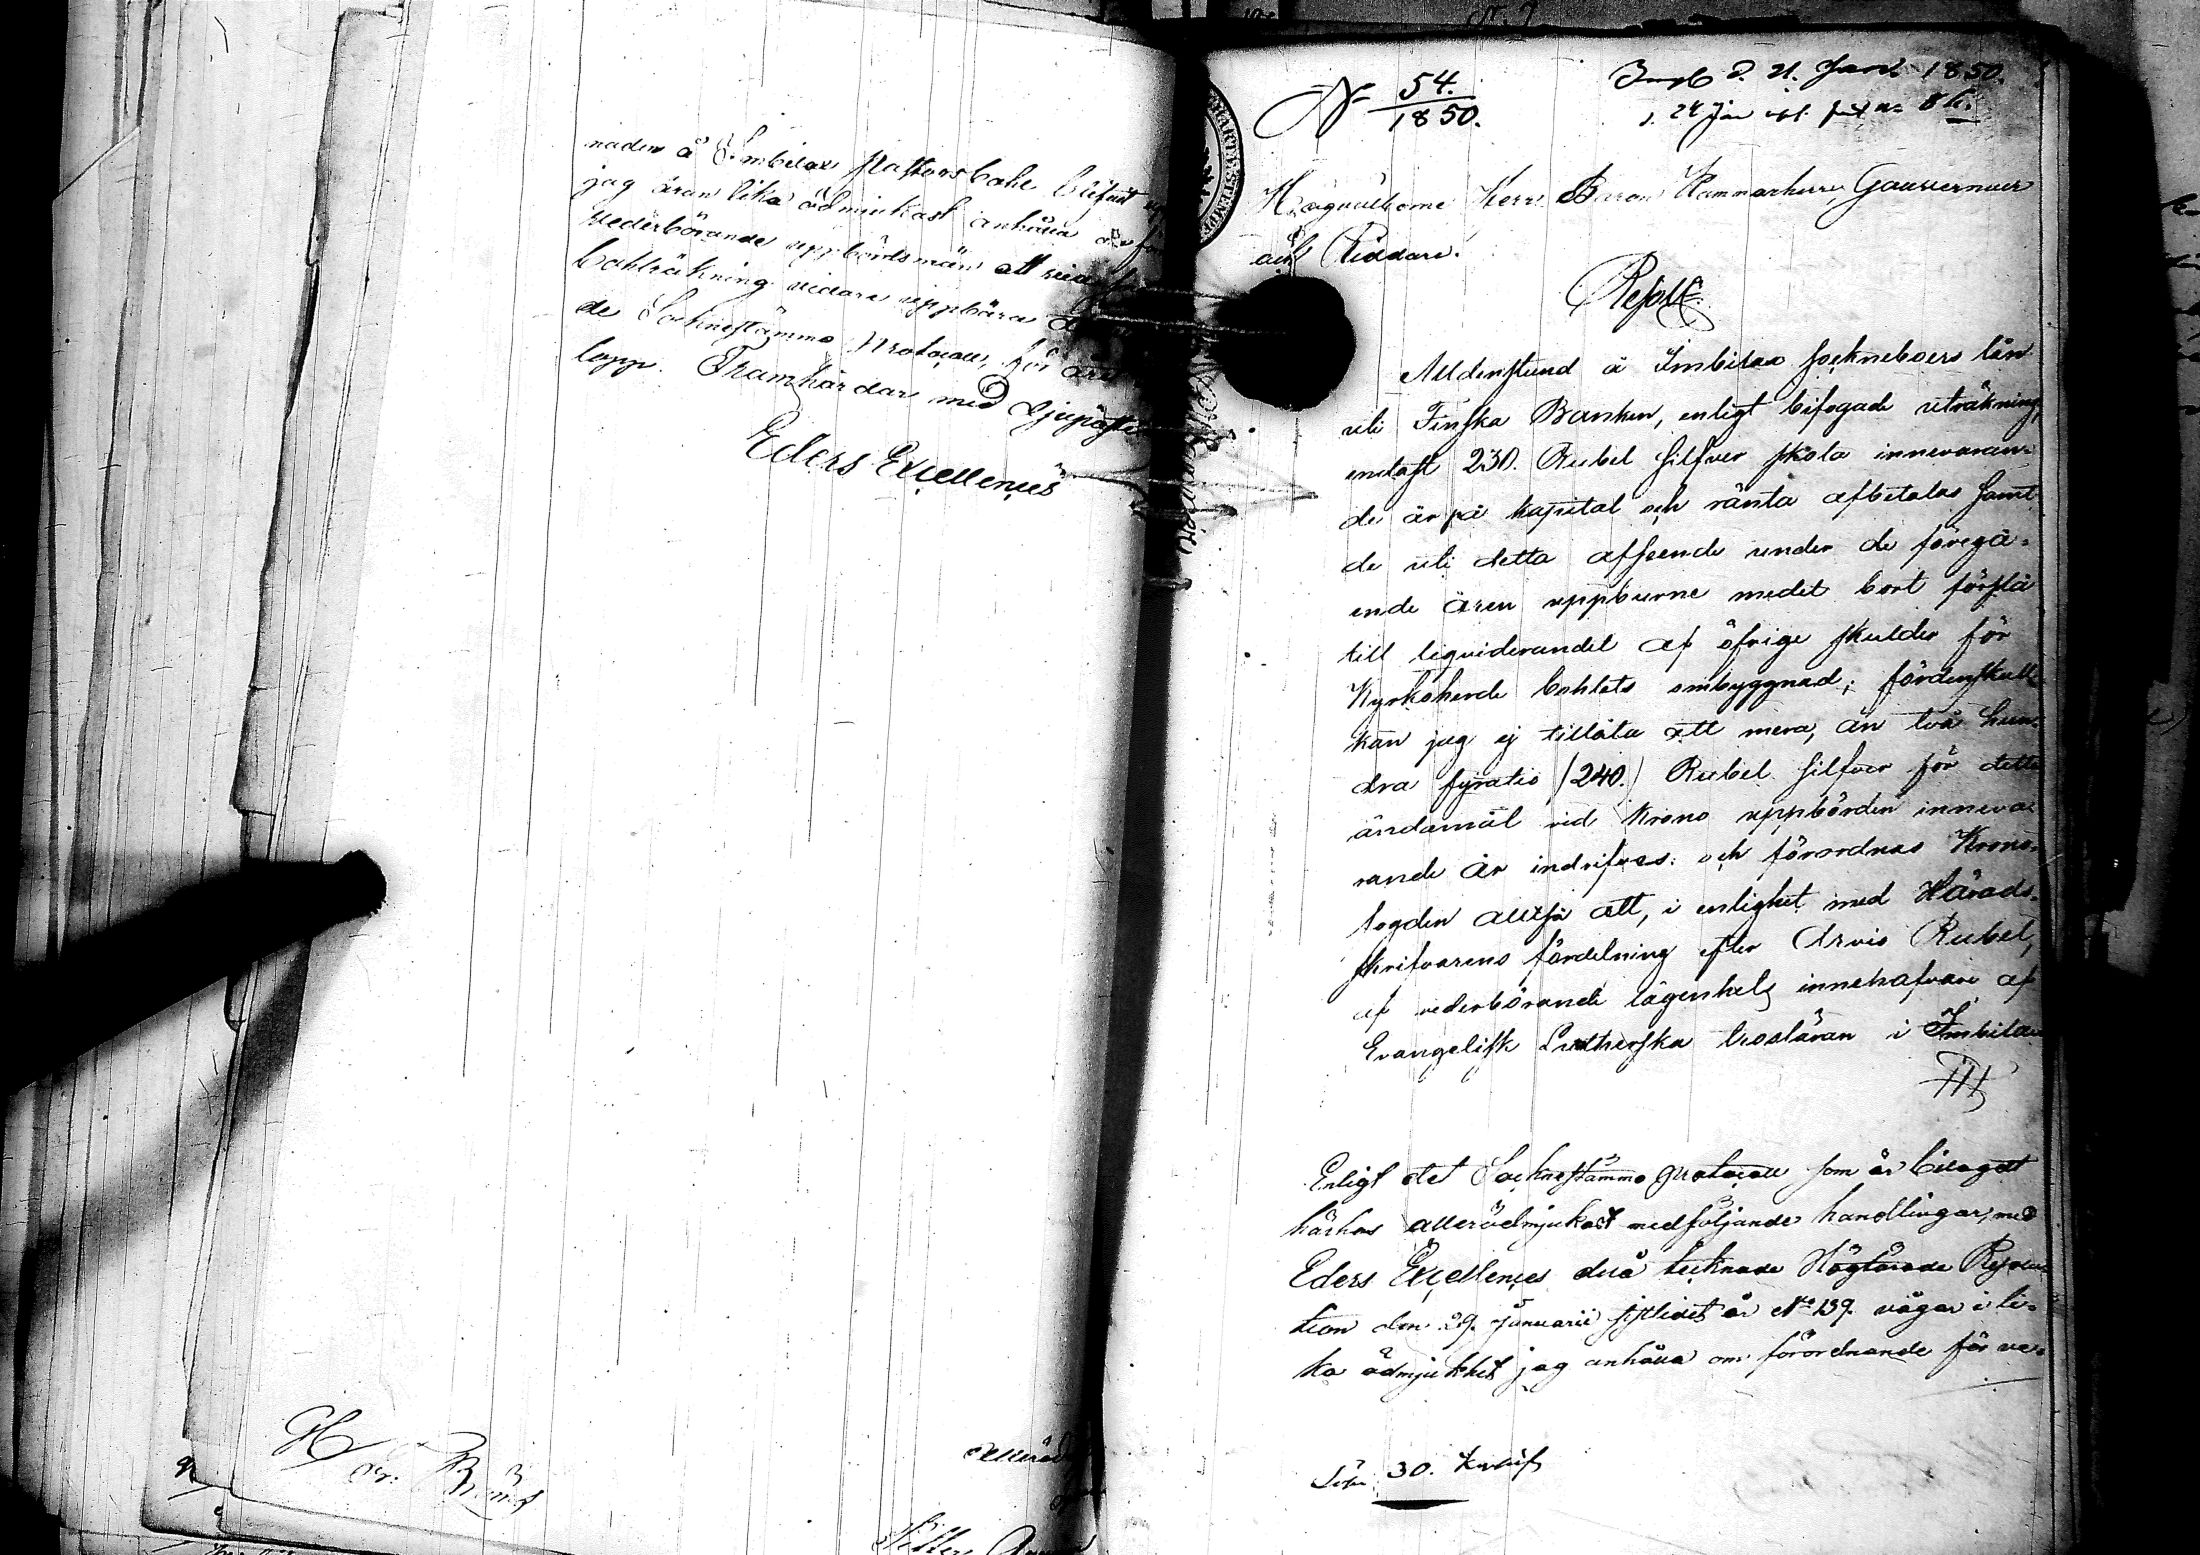 naden å Imbilax pastorsbohl blifvit
jag äran lika ödmjukast anhålla
vederbörande uppbördsmän att
bohlräkning vidare uppbära
de Sockenstämmo protocoll, för året
lopp. Framhärdar med djupaste
Eders Excellences
H
Br:
Alleröd
N 54./1850.
Ink d. 21. Jan 1850.
Högvälborne Herr Baron Kammarherre, Gouverneur
och Riddare.
Resol:
Alldenstund å Imbilax sockneboers lån
uti Finska Banken, enligt bifogade uträkning,
endast 230. Rubel silfver skola innevaran-
de år på kapital och ränta afbetalas samt
de uti detta afseende under de föregå-
ende åren uppburne medel bort förslå
till liquiderandet af öfrige skulder för
Kyrkoherde bohlets ombyggnad; fördenskull
kan jag ej tillåta att mera, än två hun-
dra fyratio /240./ Rubel silfver för detta
ändamål vid Krono uppbörden inneva-
rande år indrifves: och förordnas Krono-
fogden alltså att, i enlighet med Härads-
skrifvarens fördelning efter Arvio Rubel,
af vederbörande lägenhets innehafvare af
Evangelisk Lutherska trosläran i Imbilax
Enligt det Sockenstämmo protocoll som är bilagdt
härhos allerödmjukast medföljande handlingar, med
Eders Excellences derå tecknade Höggunstiga Resolu-
tion den 29. Januarii sistlidet år No 139. vågar i li-
ka ödmjukhet jag anhålla om förordnande för ve-
Lösen 30. kop. silf